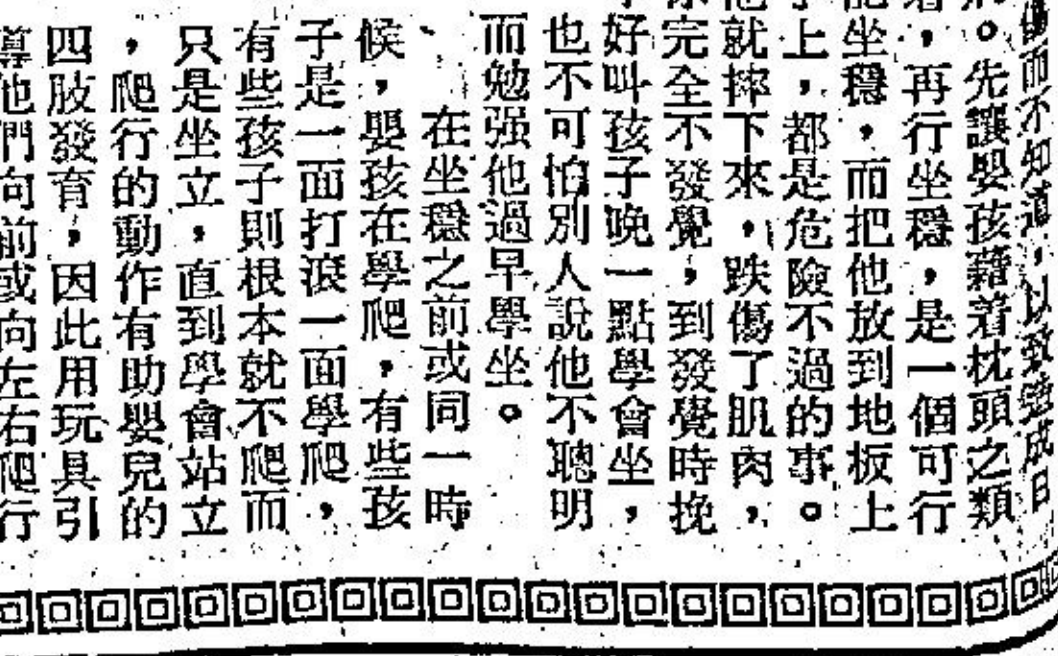 傷而不知道，以致造成日
。先讓嬰孩藉着枕頭之類
，再行坐穩，是一個可行
坐穩，而把他放到地板上
上，都是危險不過的事。
他就摔下來，跌傷了肌肉，
完全不發覺，到發覺時挽
好叫孩子晚一點學會坐，
也不可怕別人說他不聰明
而勉强他過早學坐。
、在坐穩之前或同一時
候，嬰孩在學爬，有些孩
子是一面打滾一面學爬，
有些孩子則根本就不爬而
只是坐立，直到學會站立
，爬行的動作有助嬰兒的
四肢發育，因此用玩具引
導他們向前或向左右爬行